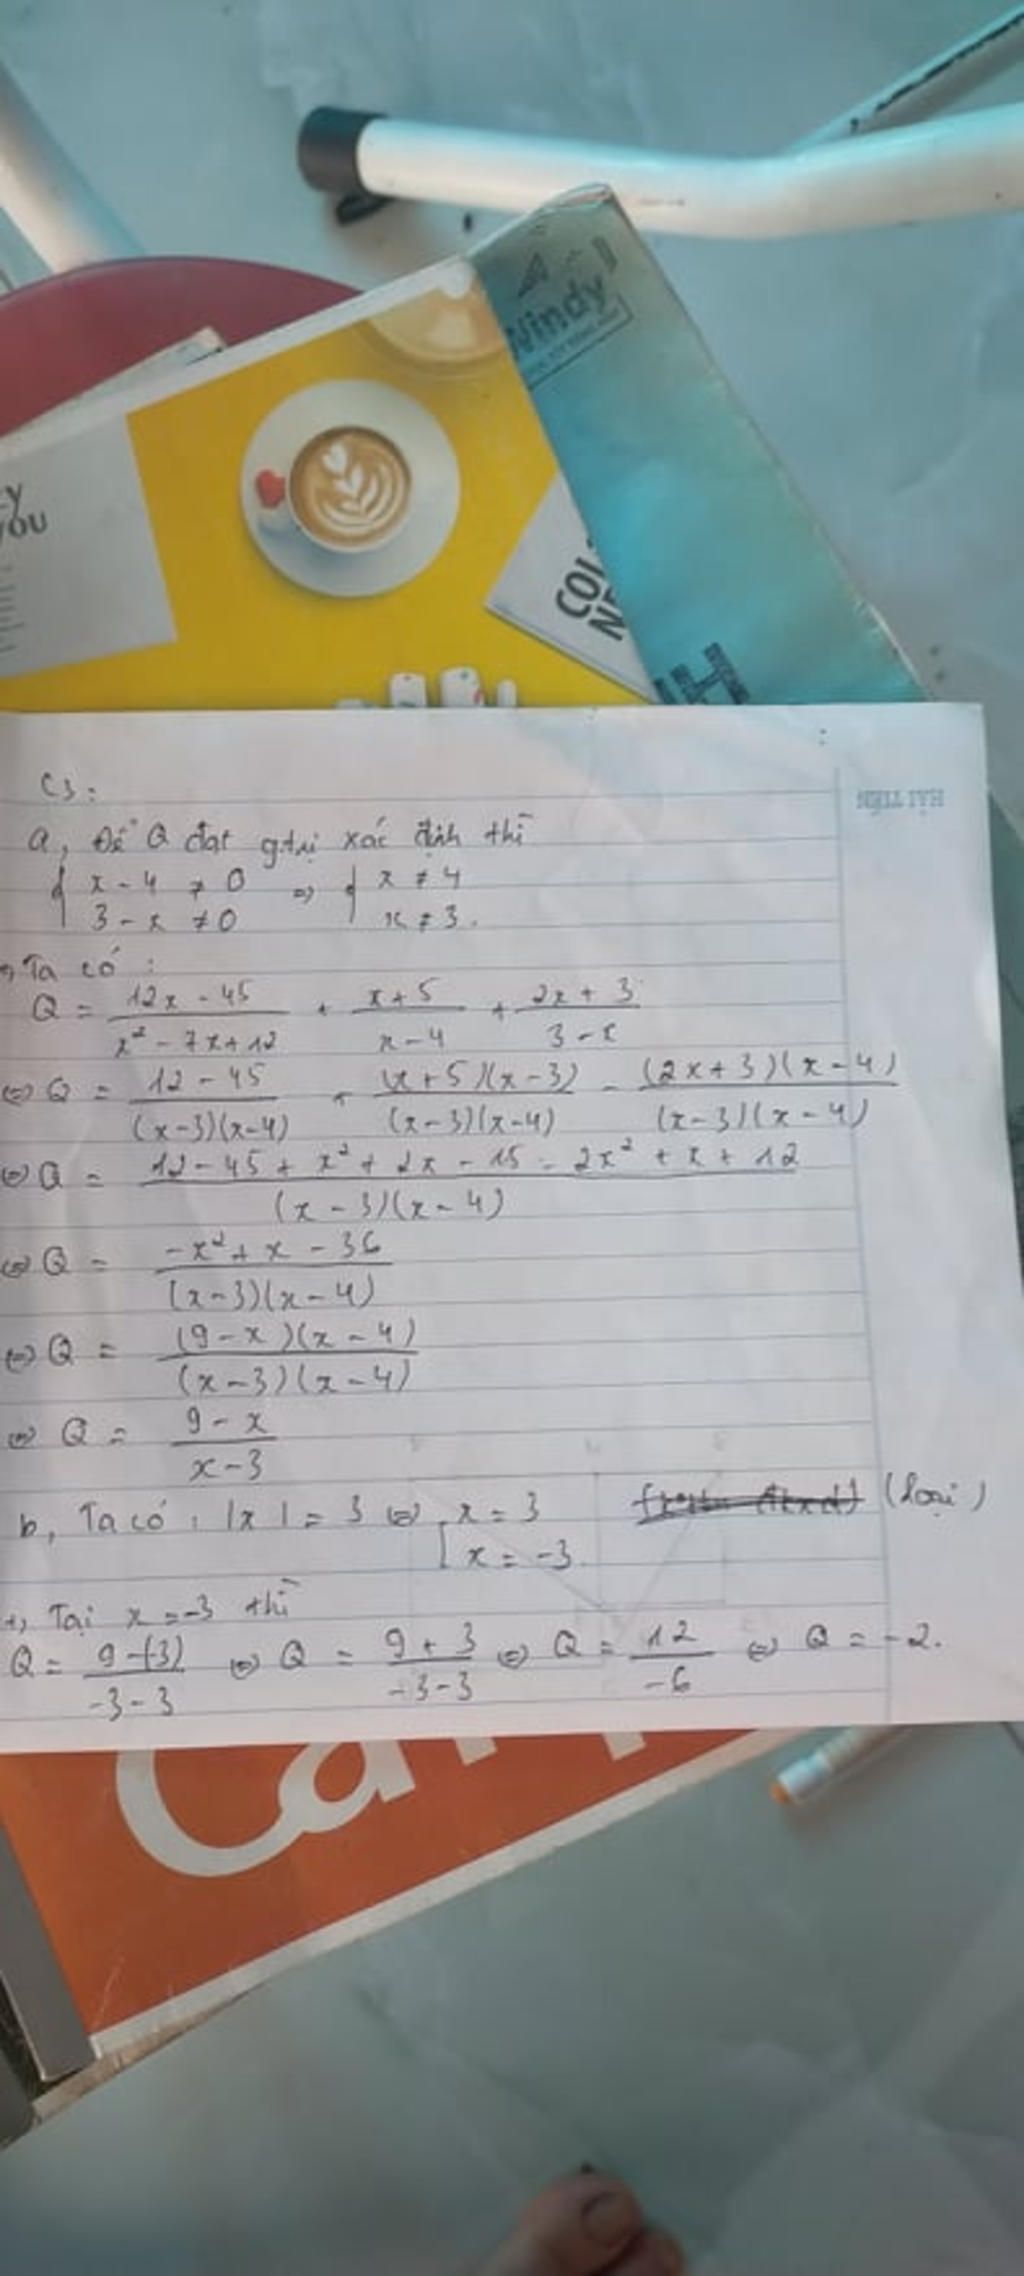 Windy
LY
YOU
COL
C3:
HẢI TIẾN
a, Để Q đạt gtrị xác định thì
{ x - 4 ≠ 0 => { x ≠ 4
3 - x ≠ 0 x ≠ 3.
+, Ta có :
Q = (12x - 45)/(x² - 7x + 12) + (x + 5)/(x - 4) + (2x + 3)/(3 - x)
<=> Q = (12 - 45)/((x-3)(x-4)) + ((x+5)(x-3))/((x-3)(x-4)) - ((2x+3)(x-4))/((x-3)(x-4))
<=> Q = (12 - 45 + x² + 2x - 15 - 2x² + x + 12)/((x - 3)(x - 4))
<=> Q = (-x² + x - 36)/((x-3)(x-4))
<=> Q = ((9 - x)(x - 4))/((x - 3)(x - 4))
<=> Q = (9 - x)/(x - 3)
b, Ta có : |x| = 3 <=> [ x = 3 (loại)
x = -3
+, Tại x = -3 thì
Q = (9-(-3))/(-3-3) <=> Q = (9 + 3)/(-3-3) <=> Q = 12/(-6) <=> Q = -2.
Ca